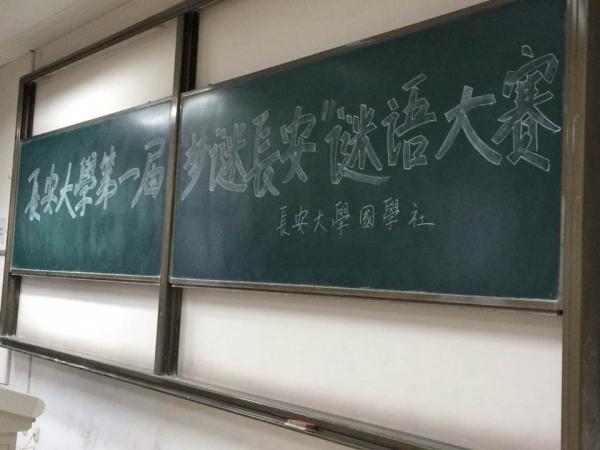 長安大學第一届"梦谜長安"谜语大赛
長安大學國學社